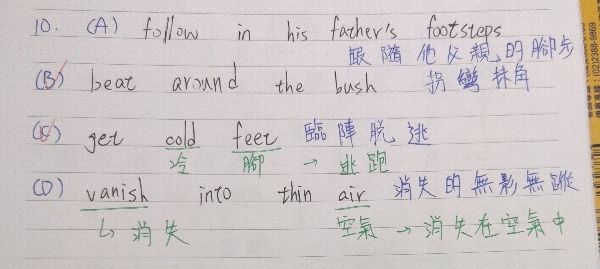 10. (A) follow in his father's footsteps
跟隨他父親的腳步
(B) beat around the bush 拐彎抹角
(C) get cold feet 臨陣脫逃
冷 腳 → 逃跑
(D) vanish into thin air 消失的無影無蹤
↳ 消失 空氣 → 消失在空氣中
(02)2388-9869